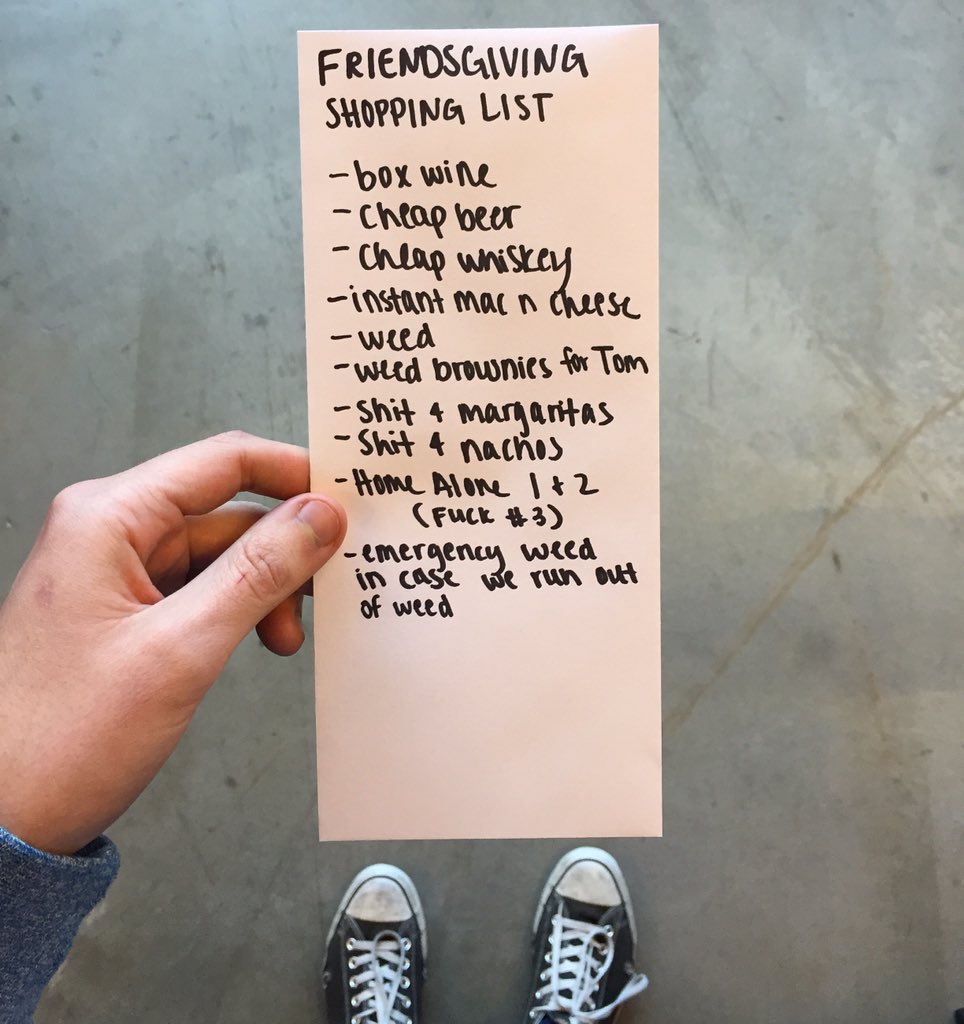 FRIENDSGIVING
SHOPPING LIST
- box wine
- cheap beer
- cheap whiskey
- instant mac n cheese
- weed
- weed brownies for Tom
- Shit 4 margaritas
- Shit 4 nachos
- Home Alone 1 + 2
(FUCK #3)
- emergency weed
in case we run out
of weed